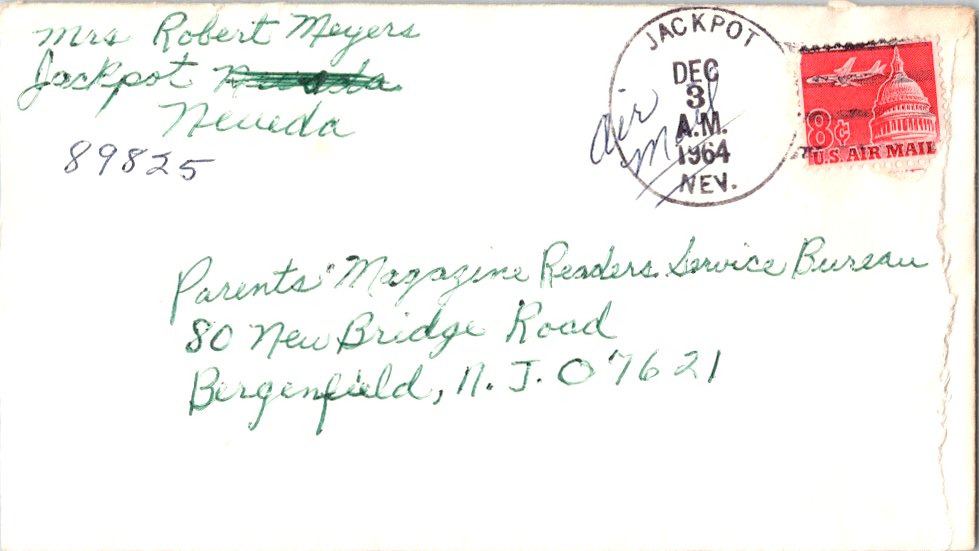 Mrs Robert Meyers
Jackpot
Neveda
89825
JACKPOT
DEC
3
A.M.
1964
NEV.
Air
Mail
8¢
U.S. AIR MAIL
Parents' Magazine Readers Service Bureau
80 New Bridge Road
Bergenfield, N. J. 07621